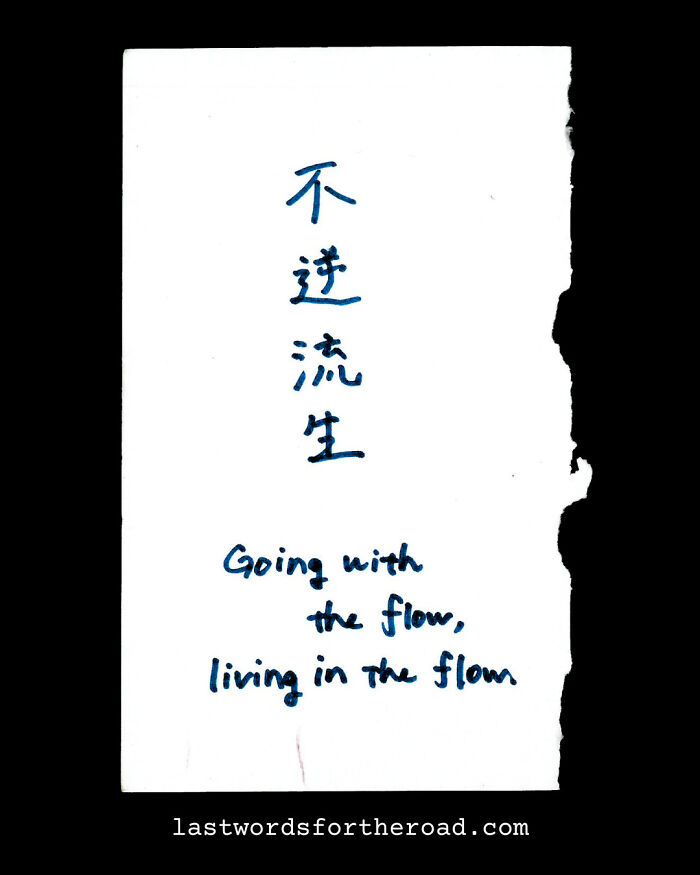 不逆流生
Going with
the flow,
living in the flow
lastwordsfortheroad.com